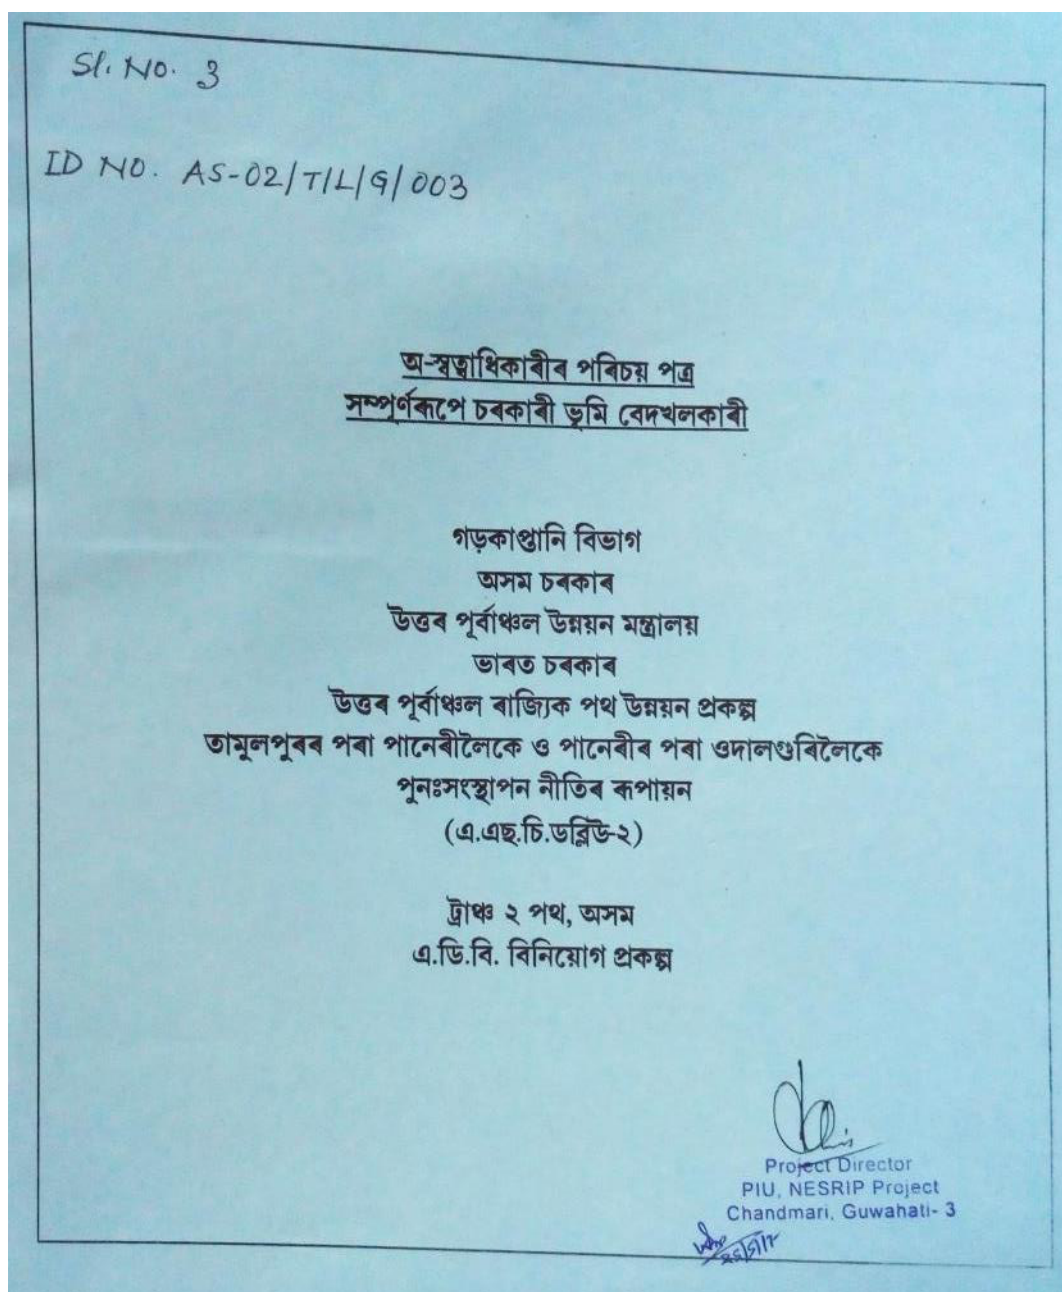 Sl. No. 3
ID NO. AS-02/T/L/G/003
অ-স্বত্বাধিকাৰীৰ পৰিচয় পত্ৰ
সম্পূৰ্ণৰূপে চৰকাৰী ভূমি বেদখলকাৰী
গড়কাপ্তানি বিভাগ
অসম চৰকাৰ
উত্তৰ পূৰ্বাঞ্চল উন্নয়ন মন্ত্ৰালয়
ভাৰত চৰকাৰ
উত্তৰ পূৰ্বাঞ্চল ৰাজ্যিক পথ উন্নয়ন প্ৰকল্প
তামূলপূৰৰ পৰা পানেৰীলৈকে ও পানেৰীৰ পৰা ওদালগুৰিলৈকে
পূনঃসংস্থাপন নীতিৰ ৰূপায়ন
(এ.এছ.চি.ডব্লিউ-২)
ট্ৰাঞ্চ ২ পথ, অসম
এ.ডি.বি. বিনিয়োগ প্ৰকল্প
Project Director
PIU, NESRIP Project
Chandmari, Guwahati- 3